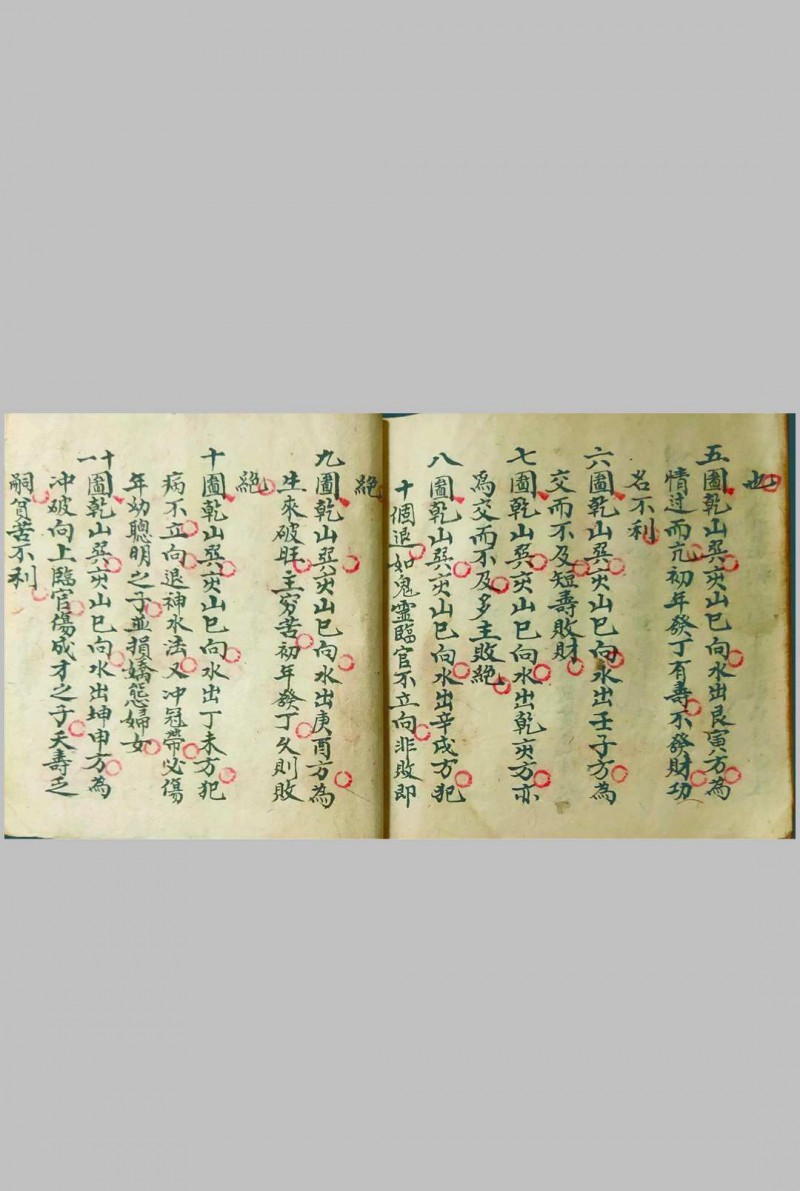 也
五圖乾山巽亥山巳向水出艮寅方為
情过而亢初年發丁有壽不發財功
名不利
六圖乾山巽亥山巳向水出壬子方為
交而不及短壽敗財
七圖乾山巽亥山巳向水出乾亥方亦
為交而不及多主敗絕
八圖乾山巽亥山巳向水出辛戌方犯
十個退如鬼靈臨官不立向非敗即
絕
九圖乾山巽亥山巳向水出庚酉方為
生來破旺主穷苦初年發丁久則敗
絕
十圖乾山巽亥山巳向水出丁未方犯
病不立向退神水法又冲冠帶必傷
年幼聰明之子並損嬌態婦女
十一圖乾山巽亥山巳向水出坤申方為
冲破向上臨官傷成才之子夭壽乏
嗣貧苦不利